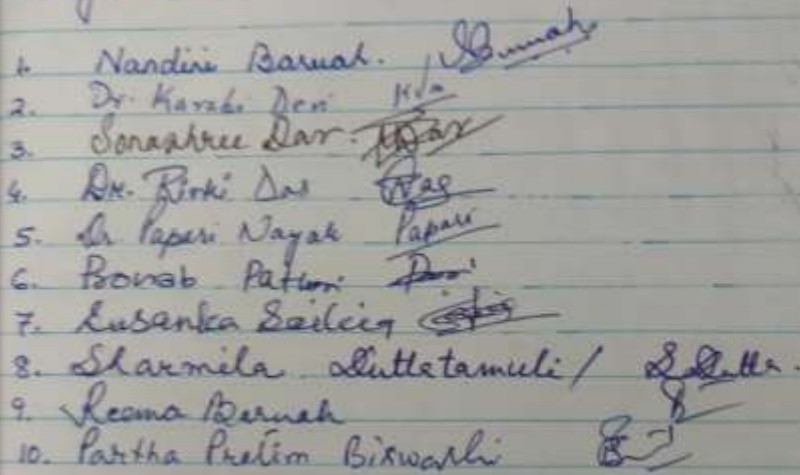 1. Nandini Baruah. SBaruah.
2. Dr. Karabi Devi
3. Sonashree Das. Das
4. Dr. Rinki Das Das
5. Dr Papari Nayak Papari
6. Pronab
7. Susanka
8. Sharmila Duttatamuli / S. Dutta.
9. Reema Baruah
10. Partha Pratim Biswashi